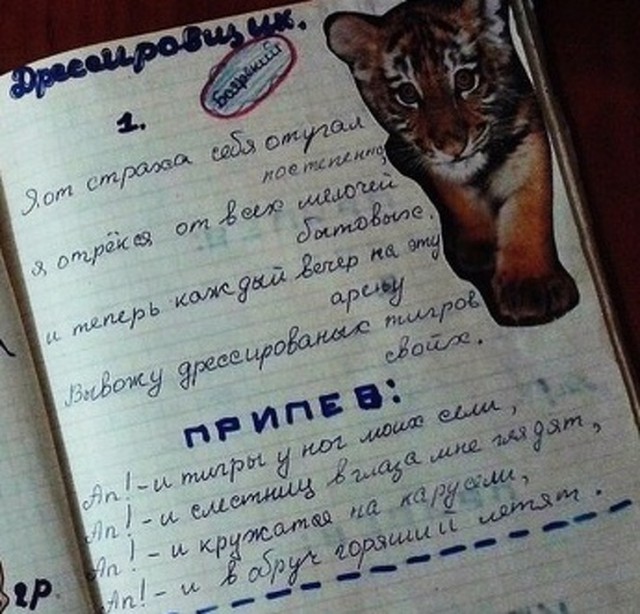 Дрессировщик.
Боярский
1.
Я от страха себя отугал
постепенно,
я отрёкся от всех мелочей
бытовых.
и теперь каждый вечер на эту
арену
Вывожу дрессированых тигров
своих.
ПРИПЕВ:
Ап! - и тигры у ног моих сели,
Ап! - и слестниц в глаза мне глядят,
Ап! - и кружатся на карусели,
Ап! - и в обруч горящий летят.
гр.